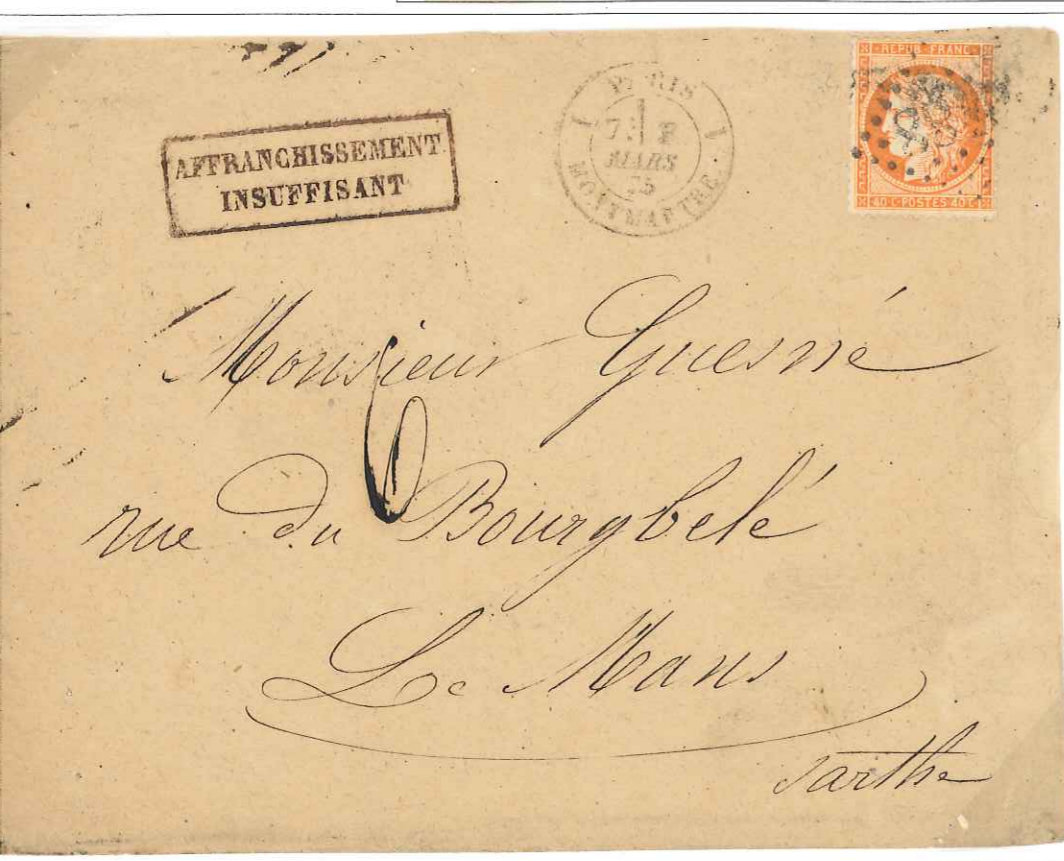 AFFRANCHISSEMENT
INSUFFISANT
PARIS
7E 2
MARS
75
MONTMARTRE
REPUB FRANC
40 C POSTES 40 C
Monsieur Guesné
6
rue du Bourgbelé
Le Mans
Sarthe